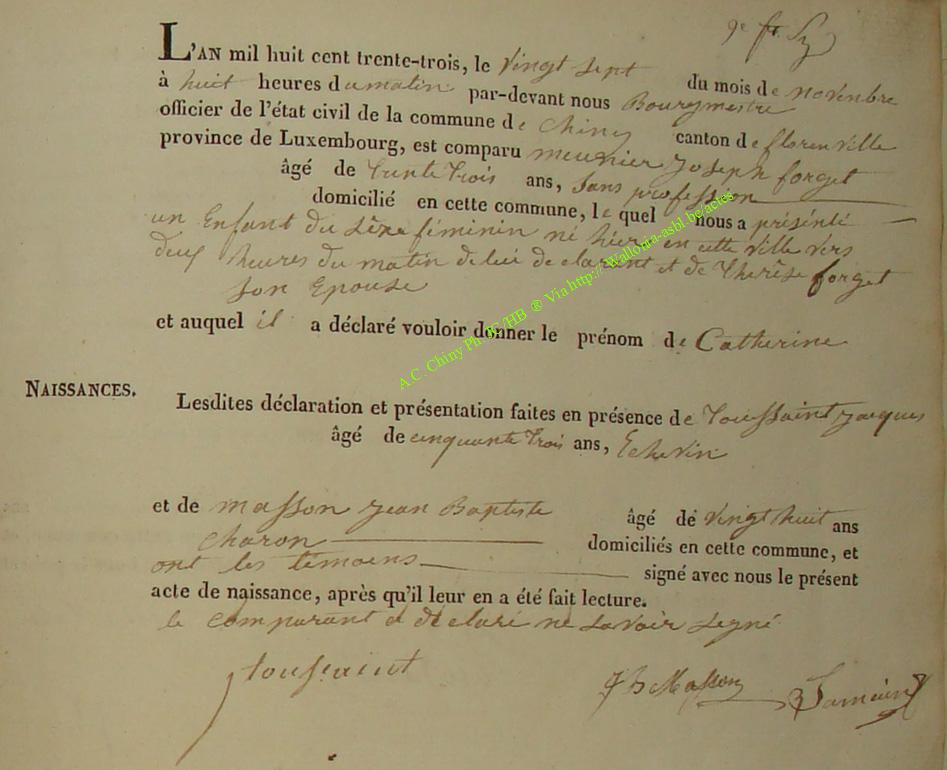 L'AN mil huit cent trente-trois, le vingt sept du mois de novembre
à huit heures du matin par-devant nous Bourgmestre
officier de l'état civil de la commune de Chiny canton de florenville
province de Luxembourg, est comparu meunier joseph forget
âgé de trente trois ans, sans profession
domicilié en cette commune, le quel nous a présenté
un Enfant du sèxe féminin né hier en cette ville vers
deux heures du matin de lui déclarant et de Therèse forget
son Epouse
et auquel il a déclaré vouloir donner le prénom de Catherine
NAISSANCES.
Lesdites déclaration et présentation faites en présence de Toussaint jacques
âgé de cinquante trois ans, Echevin
et de masson jean Baptiste âgé de vingt huit ans
charon domiciliés en cette commune, et
ont les témoins signé avec nous le présent
acte de naissance, après qu'il leur en a été fait lecture.
le comparant a déclaré ne savoir signé
j toussaint JB Masson
A.C. Chiny Ph. /HB ® Via http://Wallonia-asbl.be/actes